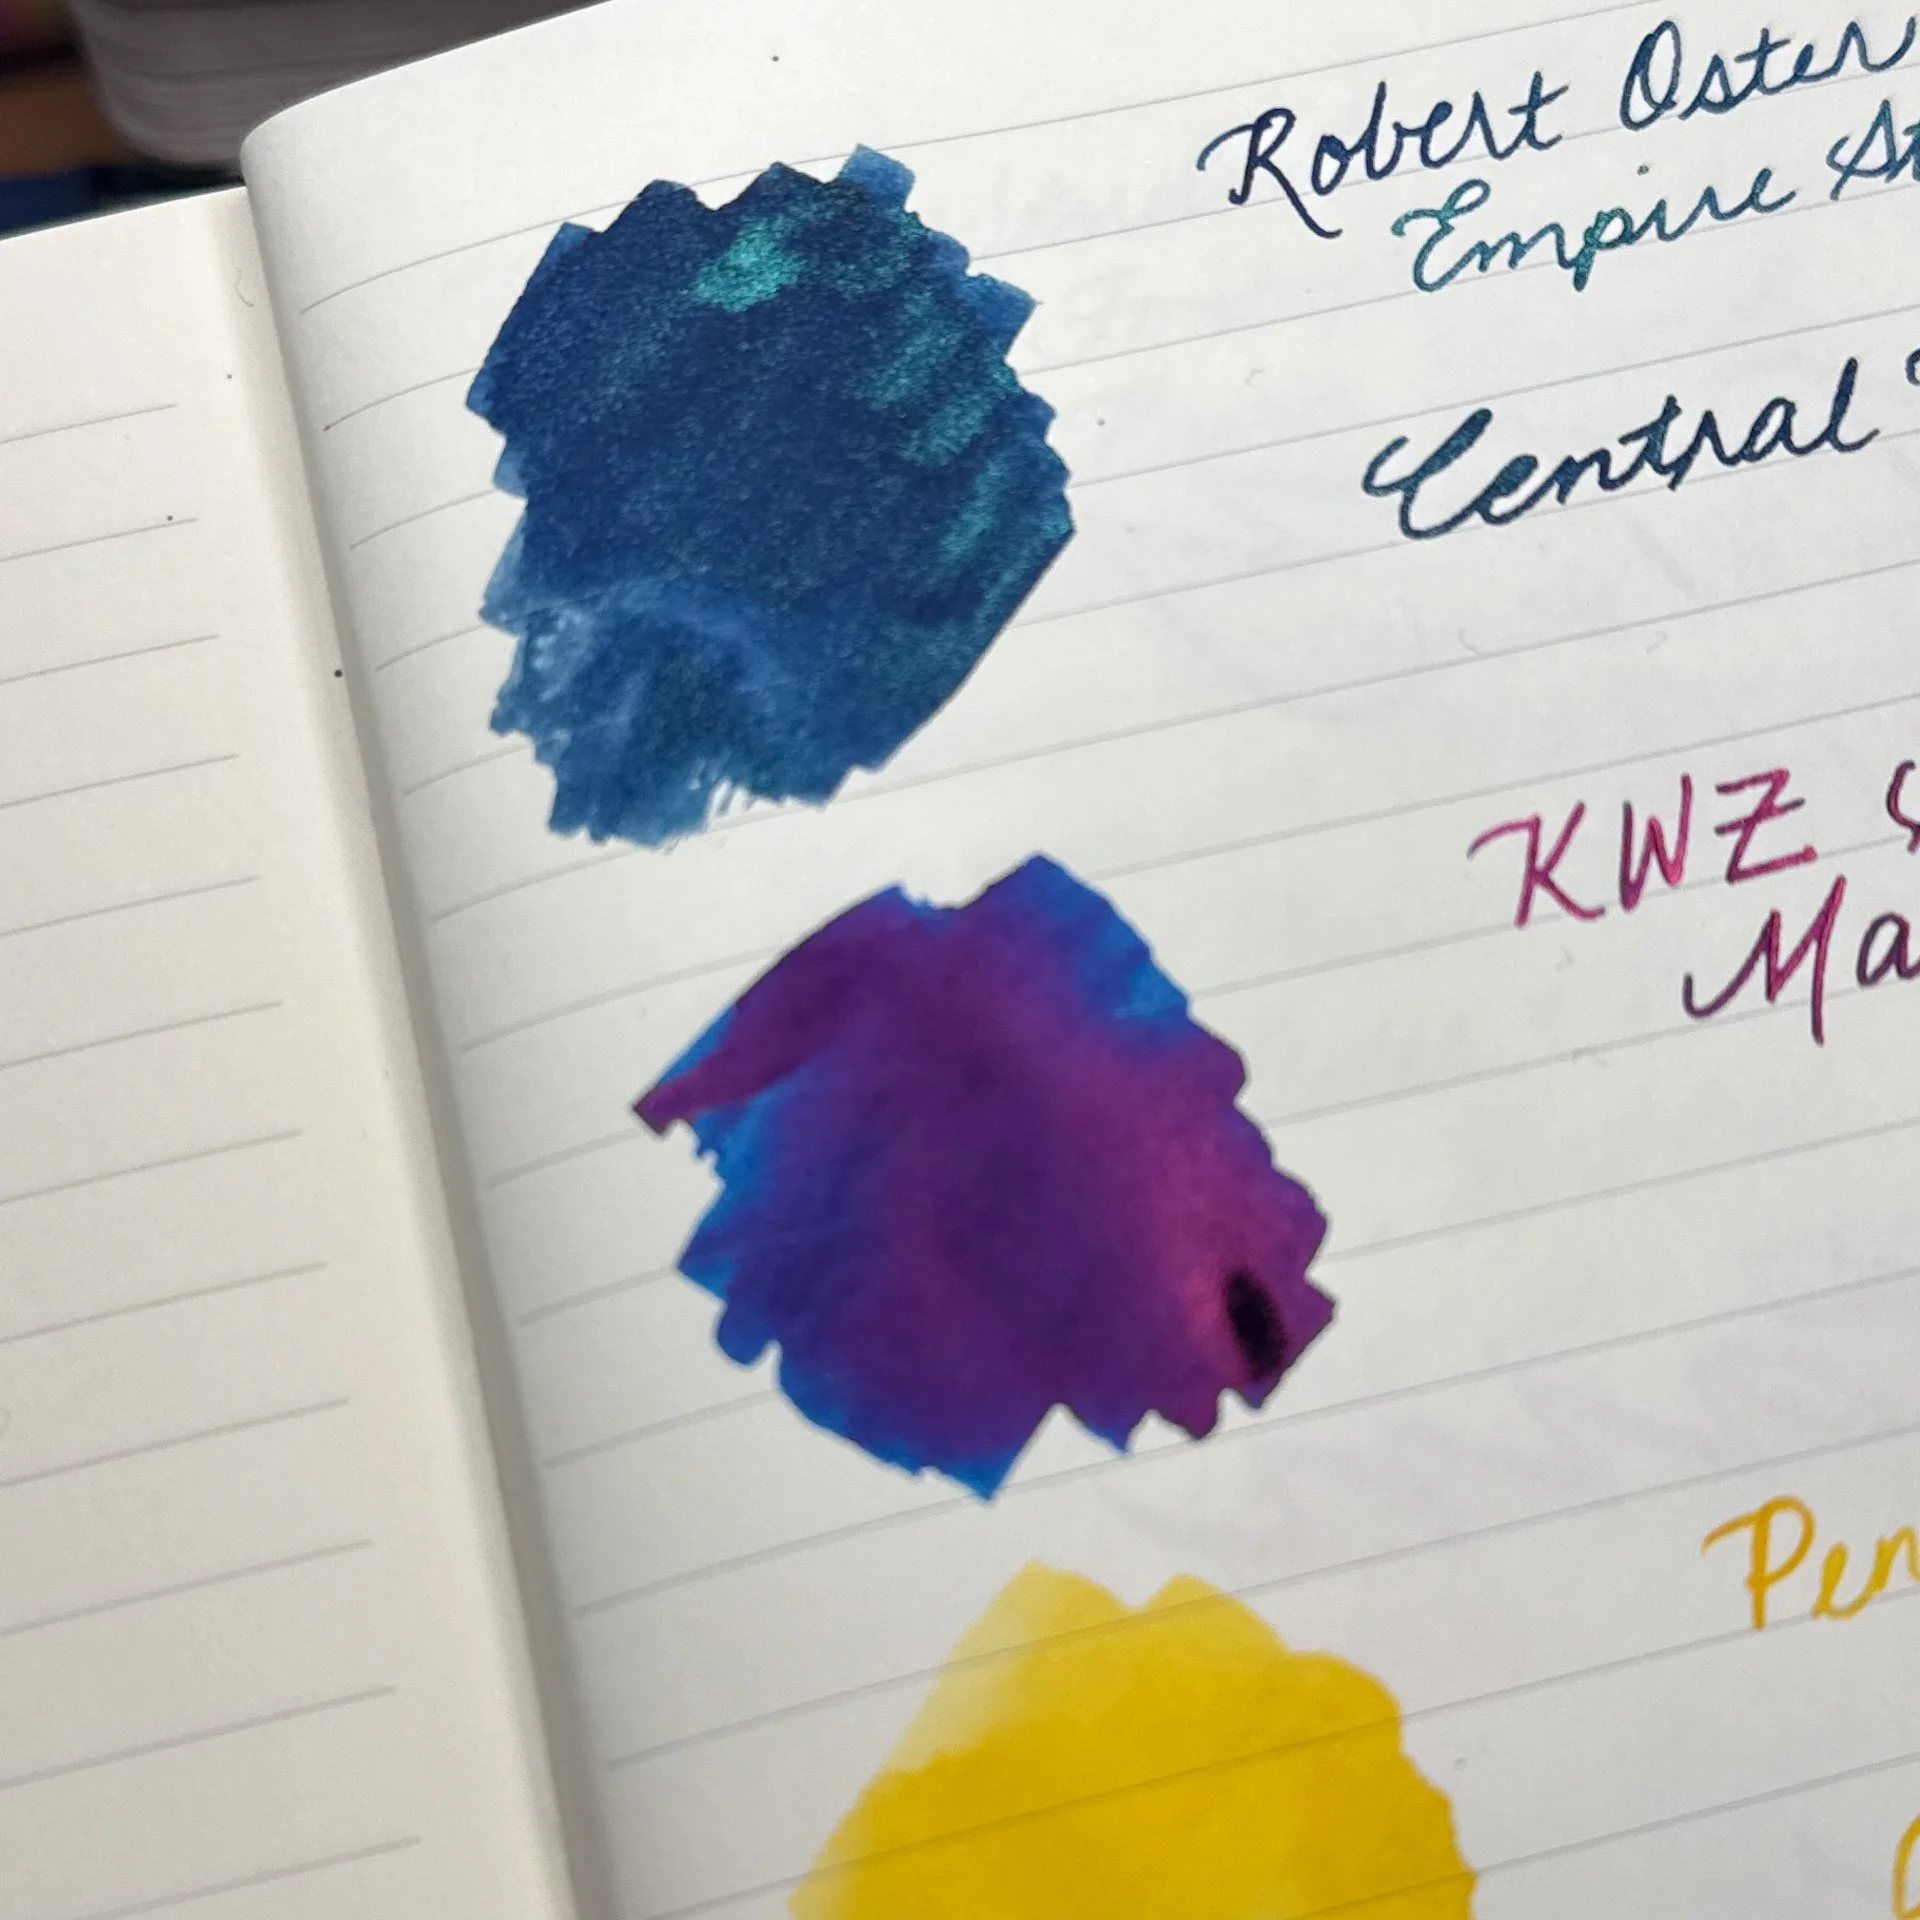 Robert Oster
Empire St
Central
KWZ S
Ma
Pen